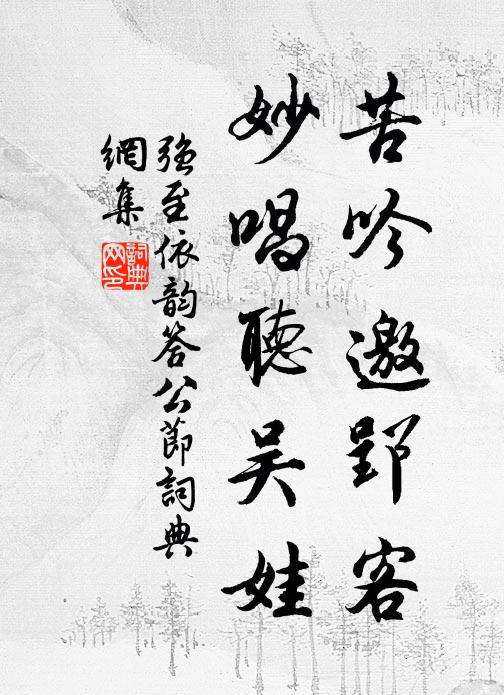 苦吟邀郢客
妙唱聽吴娃
強至依韵答公節詞典
網集
詞典网印